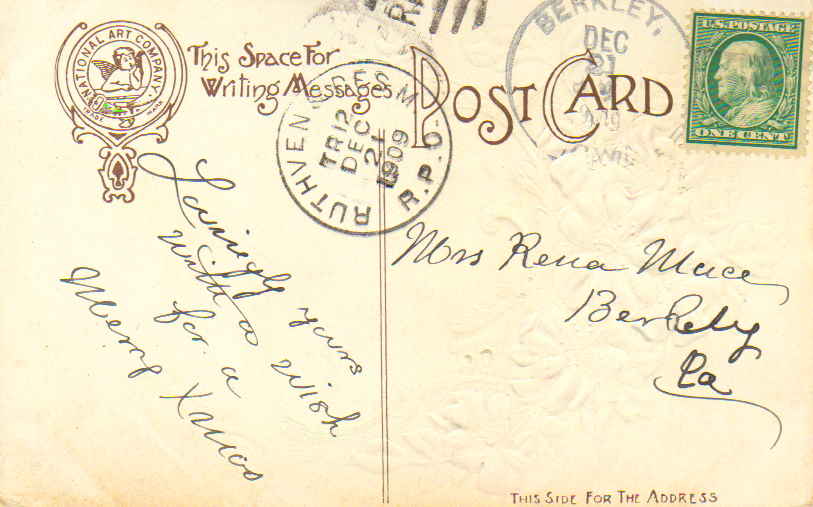 INTERNATIONAL ART COMPANY.
TRADE MARK
This Space For
Writing Messages
POST CARD
BERKLEY,
DEC
21
U.S. POSTAGE
ONE CENT
RUTHVEN & DES M.
TR 12
DEC
21
1909
R.P.O.
Lovingly yours
with a wish
for a
Merry Xmas
Mrs Rena Mace
Berkely
Ia
THIS SIDE FOR THE ADDRESS